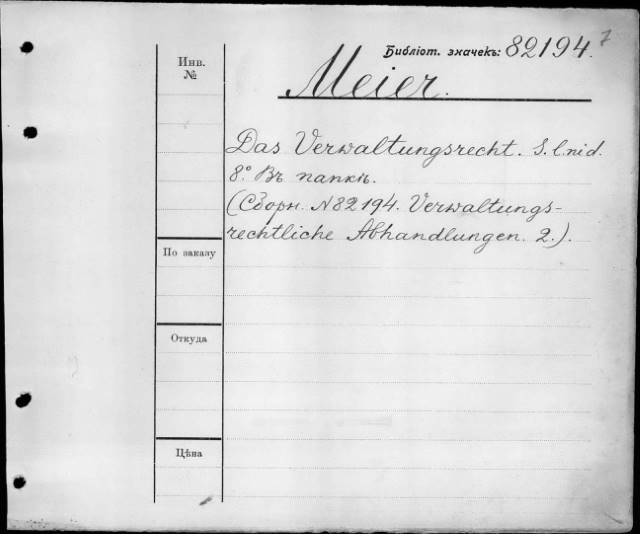 Библіот. значекъ: 82194. 7
Инв.
№
Meier.
Das Verwaltungsrecht. S. l. ni d.
8.° Въ папкѣ.
(Сборн. N 82194. Verwaltungs-
rechtliche Abhandlungen. 2.).
По заказу
Откуда
Цѣна